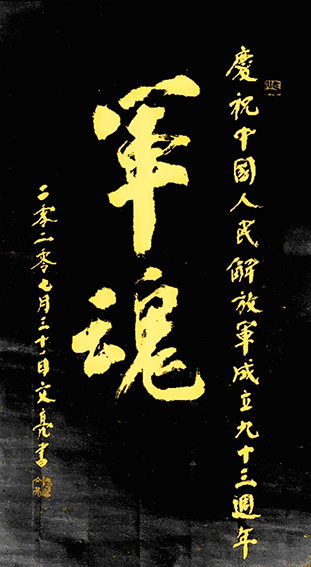 慶祝中國人民解放軍成立九十三週年
軍魂
二零二零七月三十一日文亮書